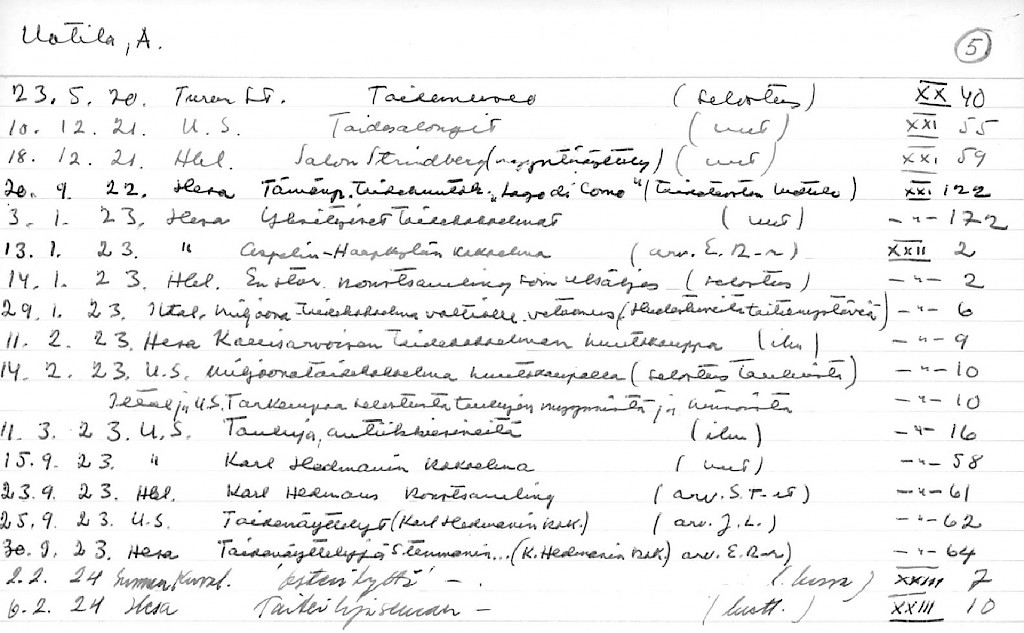 Uotila, A. 5
23. 5. 20. Turun S. (selostus) XX 40
10. 12. 21. U. S. Taidesalongit (uut) XXI 55
18. 12. 21. Hbl. Salon Strindberg (myyntinäyttely) (uut) XXI 59
20. 9. 22. Hesa Lago di Como" XXI 122
3. 1. 23. Hesa Yksityiset taidekokoelmat (uut) -"- 172
13. 1. 23. " Aspelin-Haapkylän kokoelma (arv. E. R-r) XXII 2
14. 1. 23. Hbl. En stor konstsamling som utsäljes (selostus) -"- 2
29. 1. 23. Iltal. Miljoona-taidekokoelma valtiolle, vetoomus -"- 6
11. 2. 23. Hesa Kallisarvoisen taidekokoelman huutokauppa (ilm) -"- 9
14. 2. 23. U.S. Miljoonataidekokoelma huutokaupalla (selostus tauluista) -"- 10
Iltal ja U.S. Tarkempaa selostusta taulujen myynnistä ja hinnoista -"- 10
11. 3. 23. U.S. Tauluja, antiikkiesineitä (ilm) -"- 16
15. 9. 23. " Karl Hedmanin kokoelma (uut) -"- 58
23. 9. 23. Hbl. Karl Hedmans konstsamling (arv. S. T-st) -"- 61
25. 9. 23. U.S. Taidenäyttelyt (Karl Hedmanin kok.) (arv. J. L.) -"- 62
30. 9. 23. Hesa Taidenäyttelyjä Stenmanin... (K. Hedmanin kok) arv. E. R-r) -"- 64
2. 2. 24 Suomen Kuval. - . XXIII 7
6. 2. 24 Hesa Taiteilijaseuran - (lustt.) XXIII 10